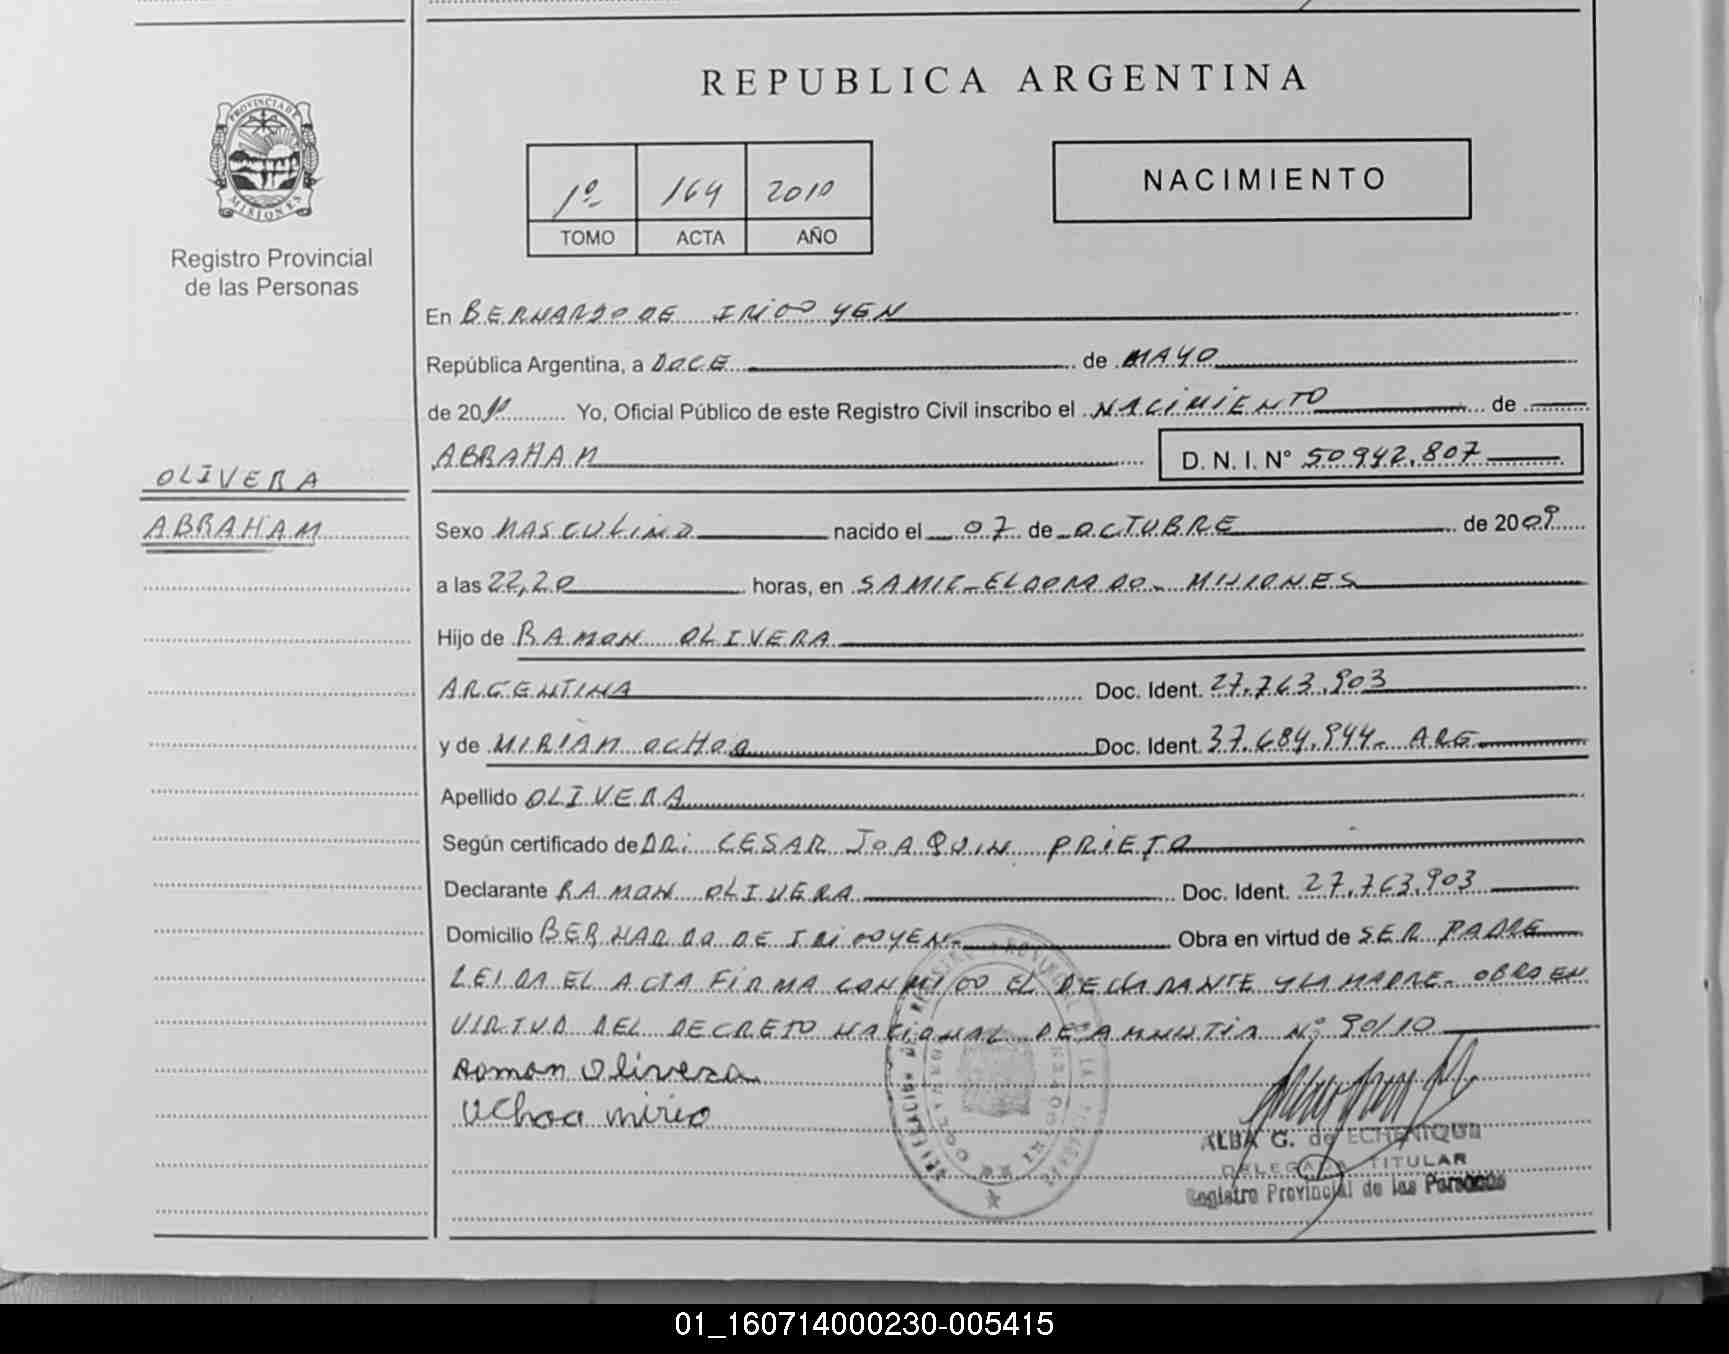 REPUBLICA ARGENTINA
PROVINCIA DE
MISIONES
Registro Provincial
de las Personas
1º 164 2010
TOMO ACTA AÑO
NACIMIENTO
En BERNARDO DE IRIGOYEN
República Argentina, a DOCE de MAYO
de 2010 Yo, Oficial Público de este Registro Civil inscribo el NACIMIENTO de
ABRAHAM D. N. I. Nº 50942.807
OLIVERA
ABRAHAM
Sexo MASCULINO nacido el 07 de OCTUBRE de 2009
a las 22,20 horas, en SAMIC-ELDORADO- MISIONES
Hijo de RAMON OLIVERA
ARGENTINA Doc. Ident. 27.763.903
y de MIRIAM OCHOA Doc. Ident. 37.684.944- ARG
Apellido OLIVERA
Según certificado de DR: CESAR JOAQUIN PRIETO
Declarante RAMON OLIVERA Doc. Ident. 27.763.903
Domicilio BERNARDO DE IRIGOYEN- Obra en virtud de SER PADRE
LEIDA EL ACTA FIRMA CONMIGO EL DECLARANTE Y LA MADRE- OBRO EN
VIRTUD DEL DECRETO NACIONAL DE AMNISTIA Nº 90/10
Ramon Olivera
Ochoa
ALBA G. de ECHENIQUE
DELEGADA TITULAR
Registro Provincial de las Personas
01_160714000230-005415